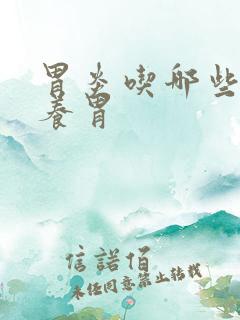 胃炎喫哪些
養胃
信諾佰
未经同意禁止转载